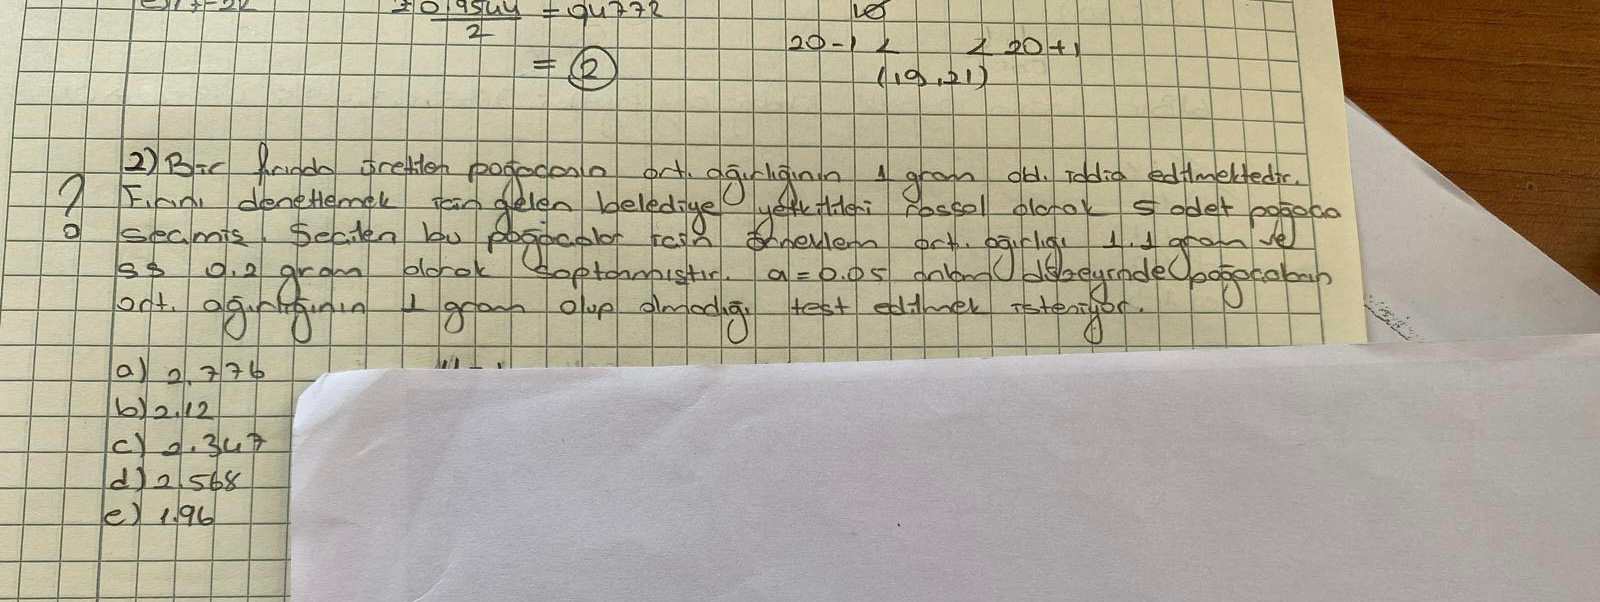 = 0,9544 / 2 = 0,4772
= 2
20-1 < < 20+1
(19,21)
2) Bir fırında üretilen poğaçanın ort. ağırlığının 1 gram old. iddia edilmektedir.
? Fırını denetlemek için gelen belediye yetkilileri rassal olarak 5 adet poğaça
seçmiş. Seçilen bu poğaçalar için örneklem ort. ağırlığı 1.1 gram ve
ss 0.2 gram olarak saptanmıştır. a=0.05 anlam düzeyinde poğaçaların
ort. ağırlığının 1 gram olup olmadığı test edilmek isteniyor.
a) 2.776
b) 2.12
c) 2.347
d) 2.568
e) 1.96